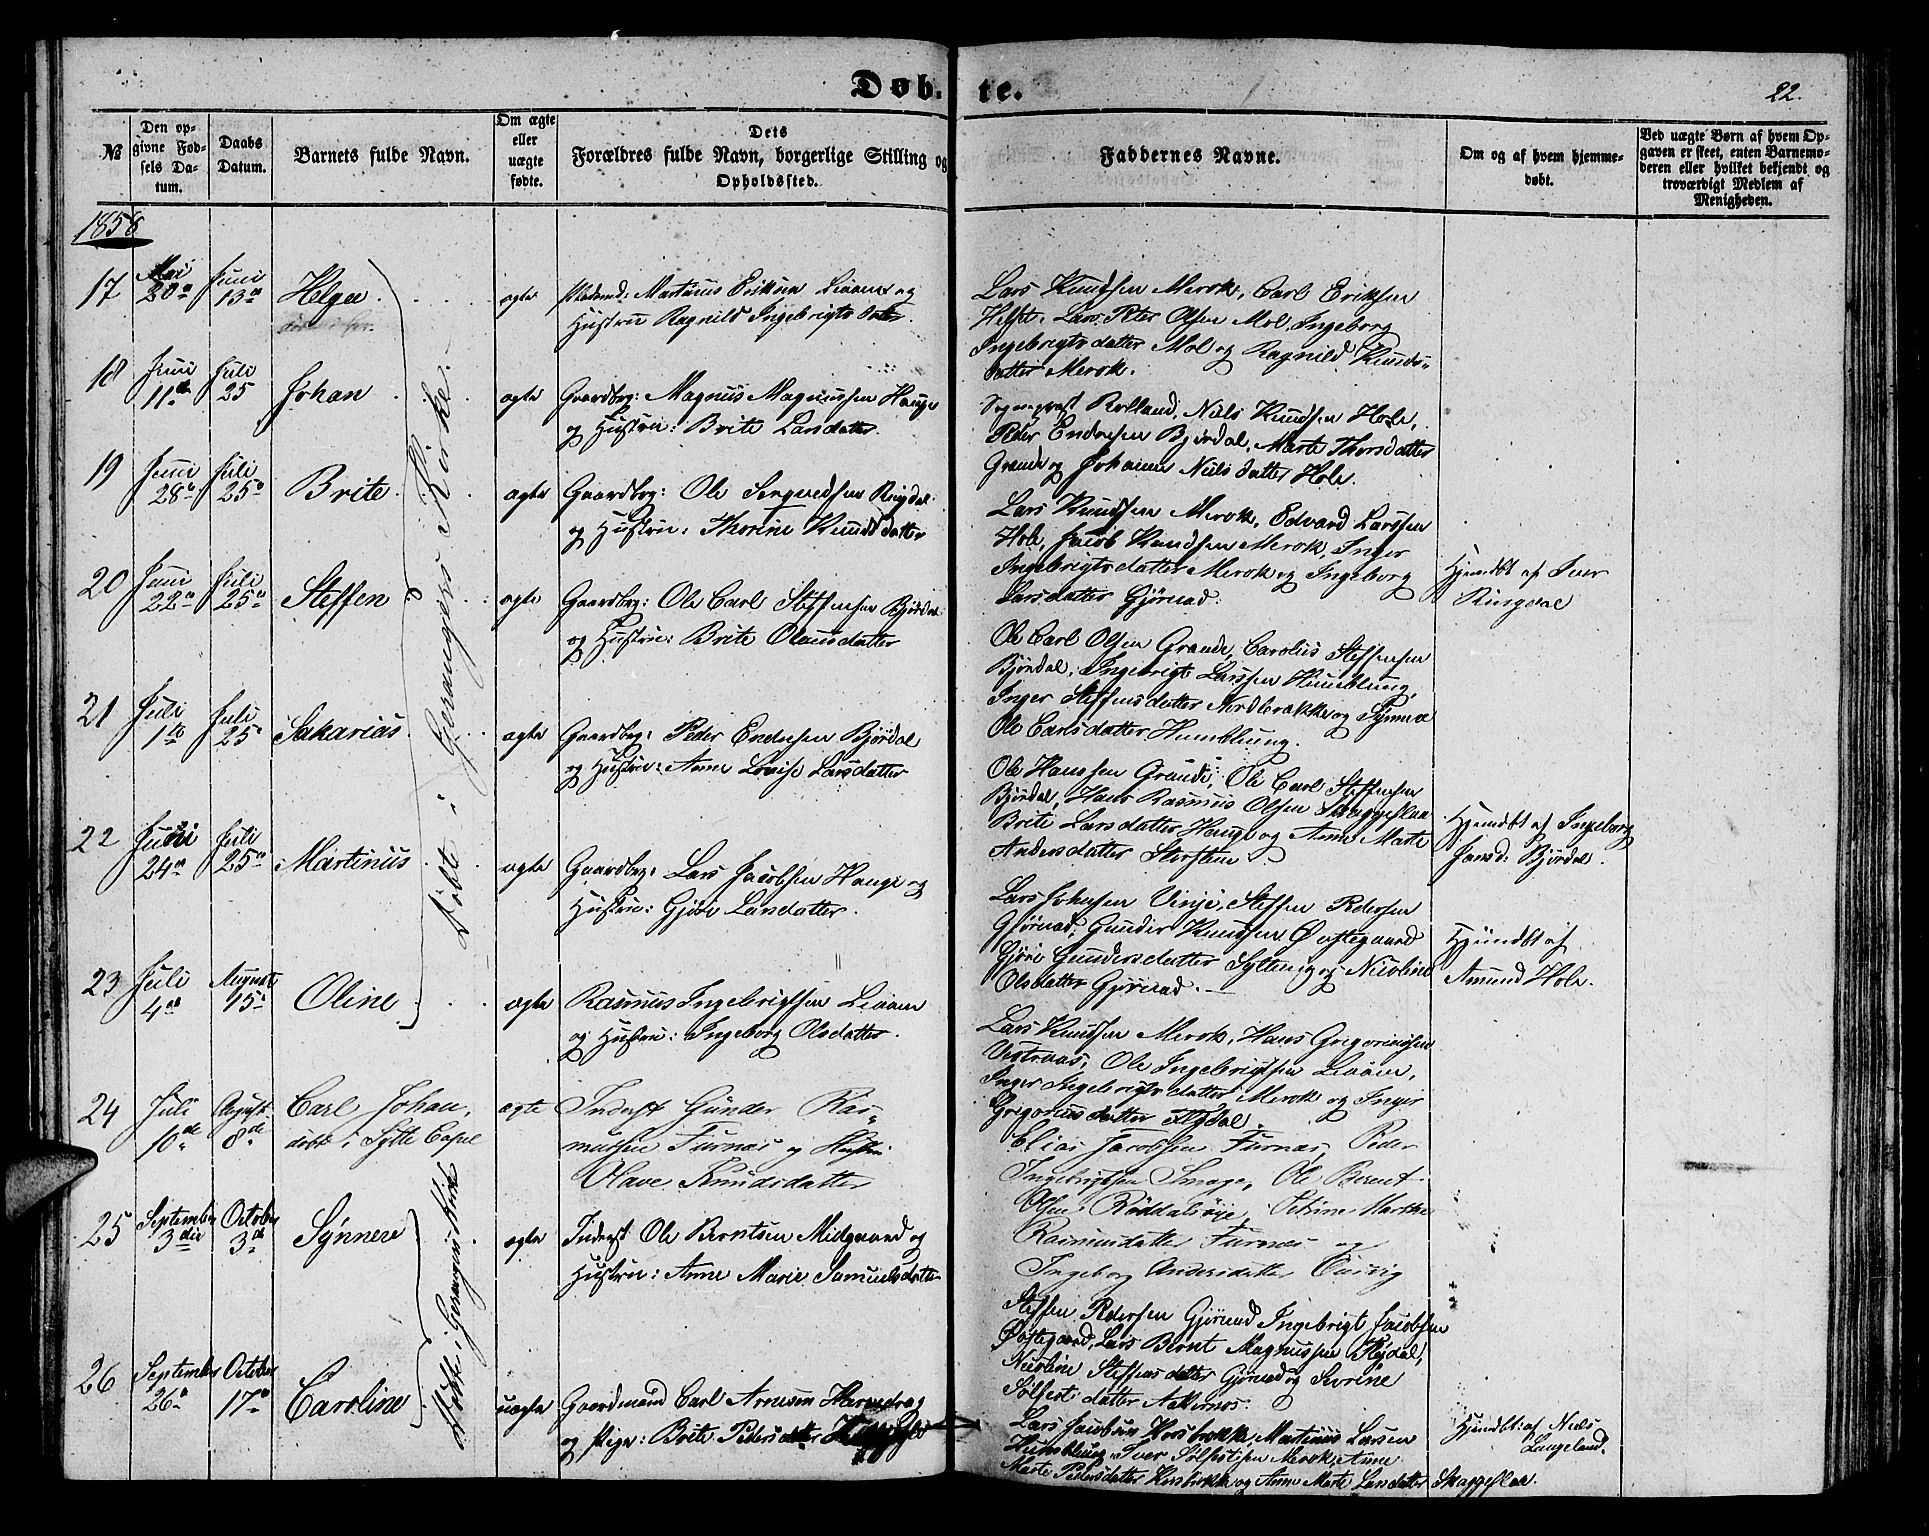 Døb-te.
22.
№
Den opgivne Fødsels Datum.
Daabs Datum.
Barnets fulde Navn.
Om ægte eller uægte fødte.
Dets Forældres fulde Navn, borgerlige Stilling og Opholdssted.
Faddernes Navne.
Om og af hvem hjemmedøbt.
Ved uægte Børn af hvem Opgaven er skeet, enten Barnemoderen eller hvilket bekjendt og troværdigt Medlem af Menigheden.
1858
Døbte i Gerangers Kirke.
17 Mai 20de Juni 13de Helga ægte Martinus Eriksen Liaanes og
Hustru Ragnild Ingebrigtsdatter.
Lars Knudsen Merok, Carl Eriksen
Lars Peter Olsen Mol, Ingeborg
Ingebrigtsdatter Mol og Ragnild Knuds-
datter Merok.
18 Juni 11te Juli 25 Johan ægte Gaardbrg: Magnus Magnussen Hauge
og Hustru: Brite Larsdatter.
Sogneprest Rolland, Niels Knudsen Hole,
Peder Endresen Bjørdal, Marte Thorsdatter
Grande og Johanne Nielsdatter Hole.
19 Juni 28de Juli 25de Brite ægte Gaardbrg: Ole Ringdal
og Hustru: Thorine Knudsdatter
Lars Knudsen Merok, Edvard Larssen
Hole, Jacob Knudsen Merok, Inger
Ingebrigtsdatter Merok og Ingeborg
Larsdatter Gjørvad.
20 Juni 22de Juli 25de Steffen ægte Gaardbrg: Ole Carl Steffensen Bjørdal
og Hustru: Brite Olausdatter
Ole Carl Olsen Grande, Carolus Steffensen
Bjørdal, Ingebrigt Larssen Humblung,
Inger Steffensdatter Nordbrække og Synneve
Ole Carlsdatter Humblung.
Hjemdbt af Iver
Ringdal
21 Juli 1te Juli 25de Sakarias. ægte Gaardbrg: Peder Endresen Bjørdal
og Hustru: Anne Lovise Larsdatter
Ole Hanssen Grande, Ole Carl Steffensen
Bjørdal, Hans Rasmus Olsen Skaggeflaa
Brite Larsdatter Hauge og Anne Marte
Andersdatter
22 Juni 24de Juli 25de Martinus ægte Gaardbrg: Lars Jacobsen Hauge og
Hustru: Gjøri Larsdatter.
Lars Johnsen Vinje, Steffen Pedersen
Gjørvad, Gunder Knudsen Østegaard
Gjøri Gundersdatter Sylteng og Nicoline
Olsdatter Gjørvad.
Hjemdbt af Ingeborg
Jonsd: Bjørdal.
23 Juli 4de August 15de Oline ægte Rasmus Ingebrigtsen Liaanes
og Hustru: Ingeborg Olsdatter.
Lars Knudsen Merok, Hans Gregoriussen
Vestraas, Ole Ingebrigtsen Liaanes,
Inger Ingebrigtsdatter Merok og Inger
Gregoriusdatter Flydal.
Hjemdbt af
Amund Hole.
24 Juli 10de August 8de Carl Johan, døbt i Sylte Capel ægte Inderst Gunder Ras-
mussen Furnæs og Hustru
Olave Knudsdatter
Elias Jacobsen Furnæs, Peder
Ingebrigtsen Smoge, Ole Berent
Olsen Røddalsøye, Petrine Marthe
Rasmusdatter Furnæs og
Ingeborg Andersdatter
25 September 3die October 3de Synnere ægte Inderst Ole Berntsen Midgaard og
Hustru: Anne Marie Samuelsdatter
Steffen Pedersen Gjørvad Ingebrigt Jacobsen
Østegaard, Lars Bernt Magnussen Flydal,
Nicoline Steffensdatter Gjørvad og Sevrine
Sølfestdatter Aakernes.
Døbte i Gerangers Kirke
26 September 26de October 17de Caroline uægte Gaardmand Carl Arnesen
og Pige: Brite Pedersdatter
Lars Jacobsen Horsbrække, Martinus Larsen
Humblung, Iver Sølfestsen Merok, Anne
Marte Pedersdatter Horsbrække og Anne Marte Larsdatter Skaggeflaa.
Hjemdbt: af Niels
Langeland.